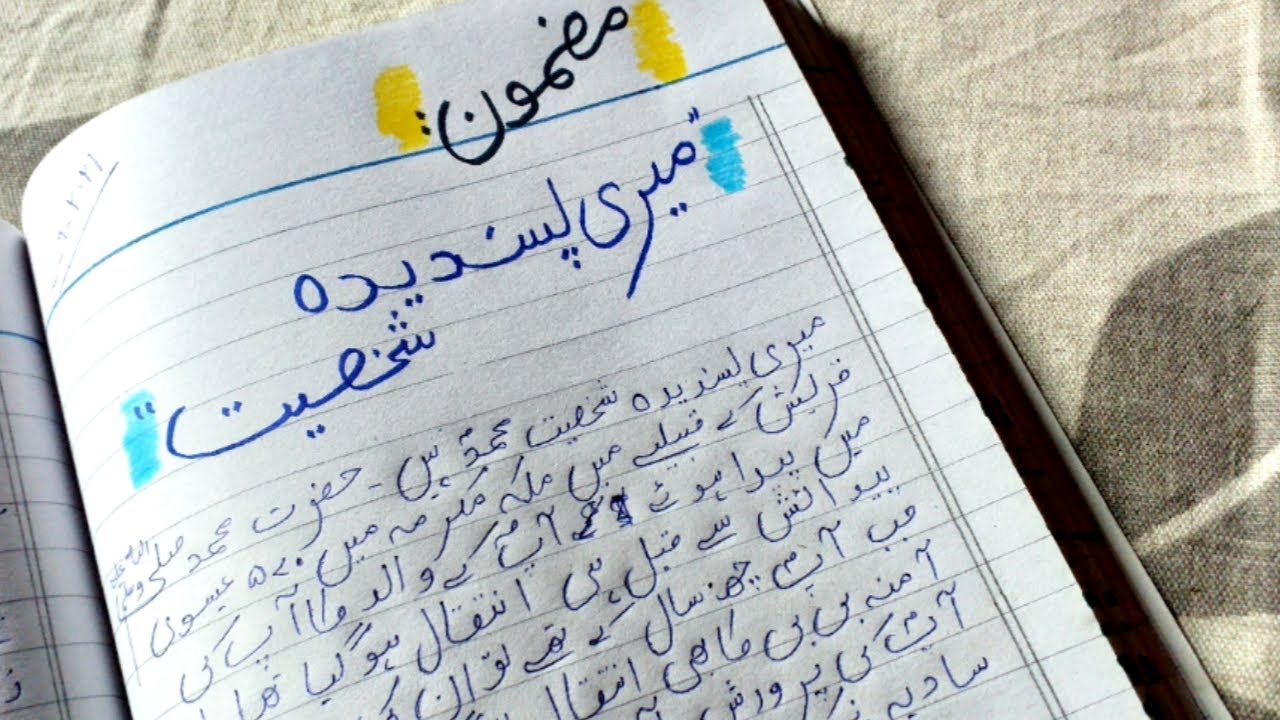 مضمون:
"میری پسندیدہ
شخصیت"
میری پسندیدہ شخصیت محمدؐ ہیں۔ حضرت محمد صلی اللہ علیہ وسلم
قریش کے قبیلے میں مکہ مکرمہ میں ۵۷۰ عیسوی
میں پیدا ہوئے آپؐ کے والد کا آپ کی
پیدائش سے قبل ہی انتقال ہو گیا تھا
جب آپؐ چھ سال کے تھے تو ان کی
آمنہ بی بی کا بھی انتقال
آپؐ کی پرورش